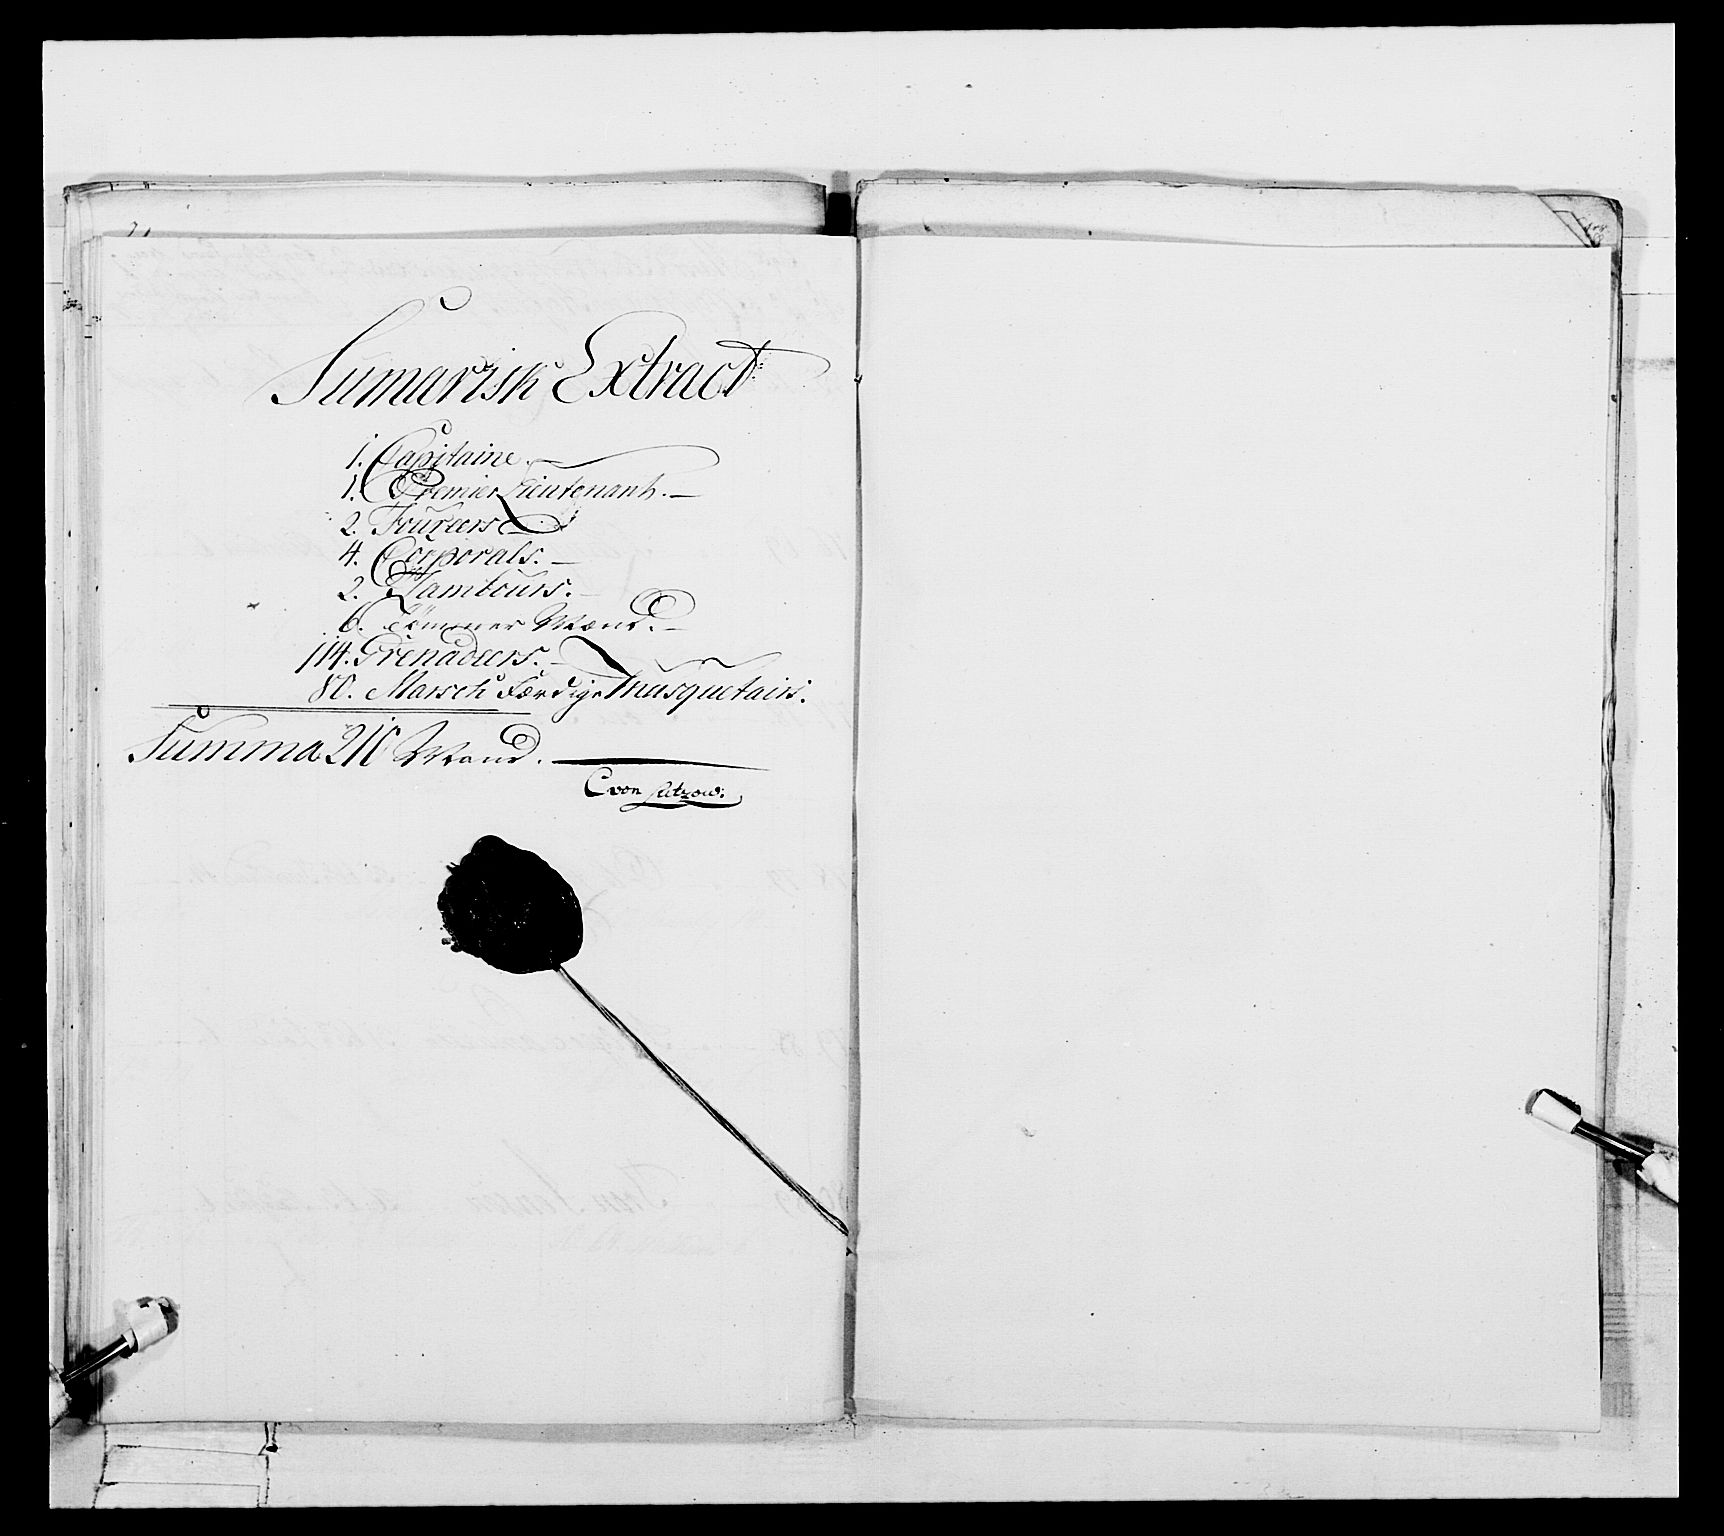 Sumarisk Extract
1. Capitaine.
1. Premier Lieutenant.
2. Foureers
4. Corporals.
2. Tambours.
6. Tömmer Mænd.
114. Grenadeers.
80. Marsch Færdige Musquetairs.
Summa 210 Mand.
C von Lützow.